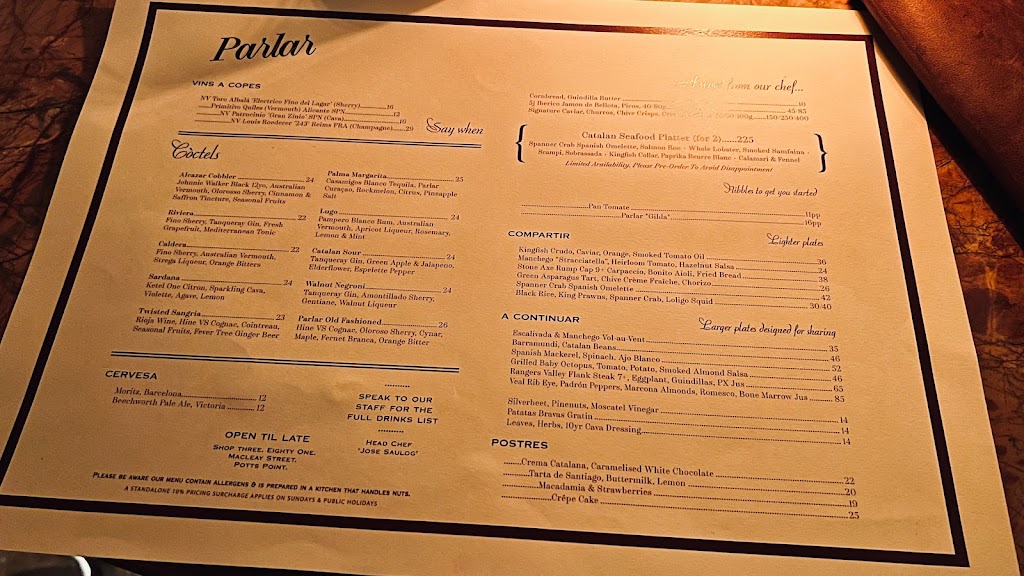 Parlar
VINS A COPES
NV Toro Albalá 'Electrico Fino del Lagar' (Sherry)..........16
Primitivo Quiles (Vermouth) Alicante SPN..........12
NV Patrocinio 'Gran Zinio' SPN (Cava)..........16
NV Louis Roederer '243' Reims FRA (Champagne)..........29
Say when
Còctels
Alcazar Cobbler..........24
Johnnie Walker Black 12yo, Australian
Vermouth, Olorosso Sherry, Cinnamon &
Saffron Tincture, Seasonal Fruits
Riviera..........22
Fino Sherry, Tanqueray Gin, Fresh
Grapefruit, Mediterranean Tonic
Caldera..........22
Fino Sherry, Australian Vermouth,
Strega Liqueur, Orange Bitters
Sardana..........24
Ketel One Citron, Sparkling Cava,
Violette, Agave, Lemon
Twisted Sangria..........23
Rioja Wine, Hine VS Cognac, Cointreau,
Seasonal Fruits, Fever Tree Ginger Beer
Palma Margarita..........25
Casamigos Blanco Tequila, Parlar
Curaçao, Rockmelon, Citrus, Pineapple
Salt
Lugo..........24
Pampero Blanco Rum, Australian
Vermouth, Apricot Liqueur, Rosemary,
Lemon & Mint
Catalan Sour..........24
Tanqueray Gin, Green Apple & Jalapeno,
Elderflower, Espelette Pepper
Walnut Negroni..........24
Tanqueray Gin, Amontillado Sherry,
Gentiane, Walnut Liqueur
Parlar Old Fashioned..........26
Hine VS Cognac, Oloroso Sherry, Cynar,
Maple, Fernet Branca, Orange Bitter
CERVESA
Moritz, Barcelona..........12
Beechworth Pale Ale, Victoria..........12
SPEAK TO OUR
STAFF FOR THE
FULL DRINKS LIST
HEAD CHEF
'JOSE SAULOG'
OPEN TIL LATE
SHOP THREE, EIGHTY ONE,
MACLEAY STREET,
POTTS POINT.
PLEASE BE AWARE OUR MENU CONTAIN ALLERGENS & IS PREPARED IN A KITCHEN THAT HANDLES NUTS.
A STANDALONE 10% PRICING SURCHARGE APPLIES ON SUNDAYS & PUBLIC HOLIDAYS
from our chef...
Cornbread, Guindilla Butter..........10
5j Iberico Jamon de Bellota, Picos, 40/80g..........45/85
Signature Caviar, Churros, Chive Crisps, 100g..........150/250/400
Catalan Seafood Platter (for 2)......225
Spanner Crab Spanish Omelette, Salmon Roe - Whole Lobster, Smoked Samfaina -
Scampi, Sobrassada - Kingfish Collar, Paprika Beurre Blanc - Calamari & Fennel
Limited Availability, Please Pre-Order To Avoid Disappointment
Nibbles to get you started
..........Pan Tomate..........11pp
..........Parlar "Gilda"..........16pp
COMPARTIR
Lighter plates
Kingfish Crudo, Caviar, Orange, Smoked Tomato Oil..........36
Manchego "Stracciatella", Heirloom Tomato, Hazelnut Salsa..........24
Stone Axe Rump Cap 9+ Carpaccio, Bonito Aioli, Fried Bread..........38
Green Asparagus Tart, Chive Crème Fraîche, Chorizo..........26
Spanner Crab Spanish Omelette..........42
Black Rice, King Prawns, Spanner Crab, Loligo Squid..........30/40
A CONTINUAR
Larger plates designed for sharing
Escalivada & Manchego Vol-au-Vent..........35
Barramundi, Catalan Beans..........46
Spanish Mackerel, Spinach, Ajo Blanco..........52
Grilled Baby Octopus, Tomato, Potato, Smoked Almond Salsa..........46
Rangers Valley Flank Steak 7+, Eggplant, Guindillas, PX Jus..........65
Veal Rib Eye, Padrón Peppers, Marcona Almonds, Romesco, Bone Marrow Jus..........85
Silverbeet, Pinenuts, Moscatel Vinegar..........14
Patatas Bravas Gratin..........14
Leaves, Herbs, 10yr Cava Dressing..........14
POSTRES
........Crema Catalana, Caramelised White Chocolate..........22
..........Tarta de Santiago, Buttermilk, Lemon..........20
............Macadamia & Strawberries..........19
..............Crêpe Cake..........25